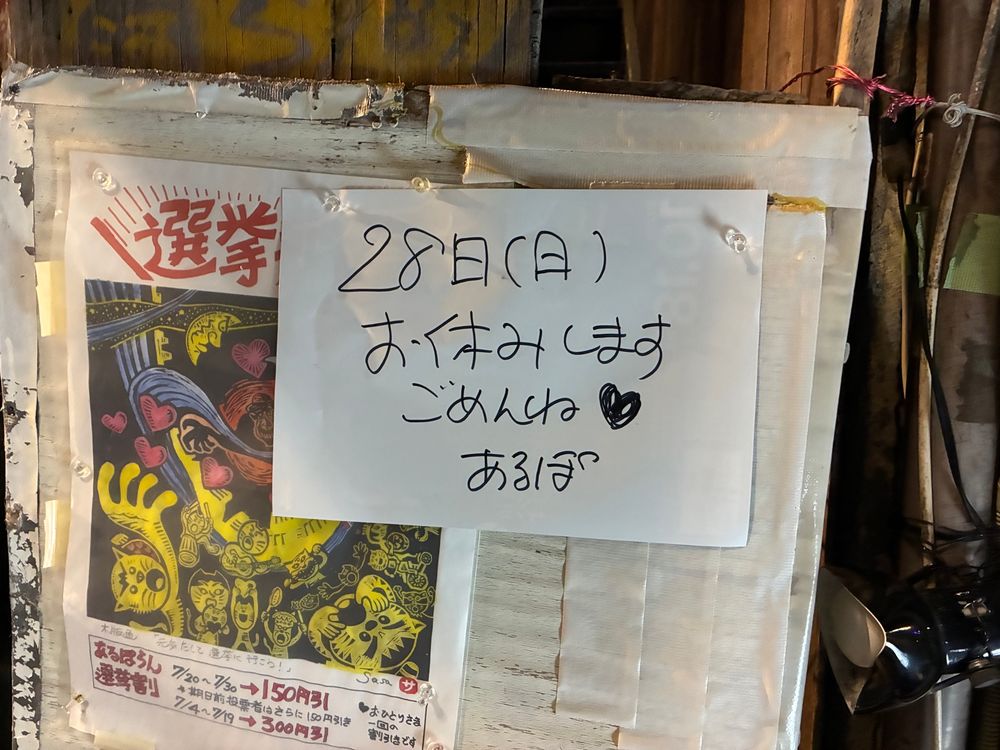 選挙
28日(日)
お休みします
ごめんね♥
あるぽ
木版画 「元気だして 選挙に行こう!」
Sasa サ
あるぽらん
選挙割り
7/20〜7/30→150円引
*期日前投票者はさらに150円引き
7/4〜7/19→300円引
♥おひとりさま
一回の
割引きです